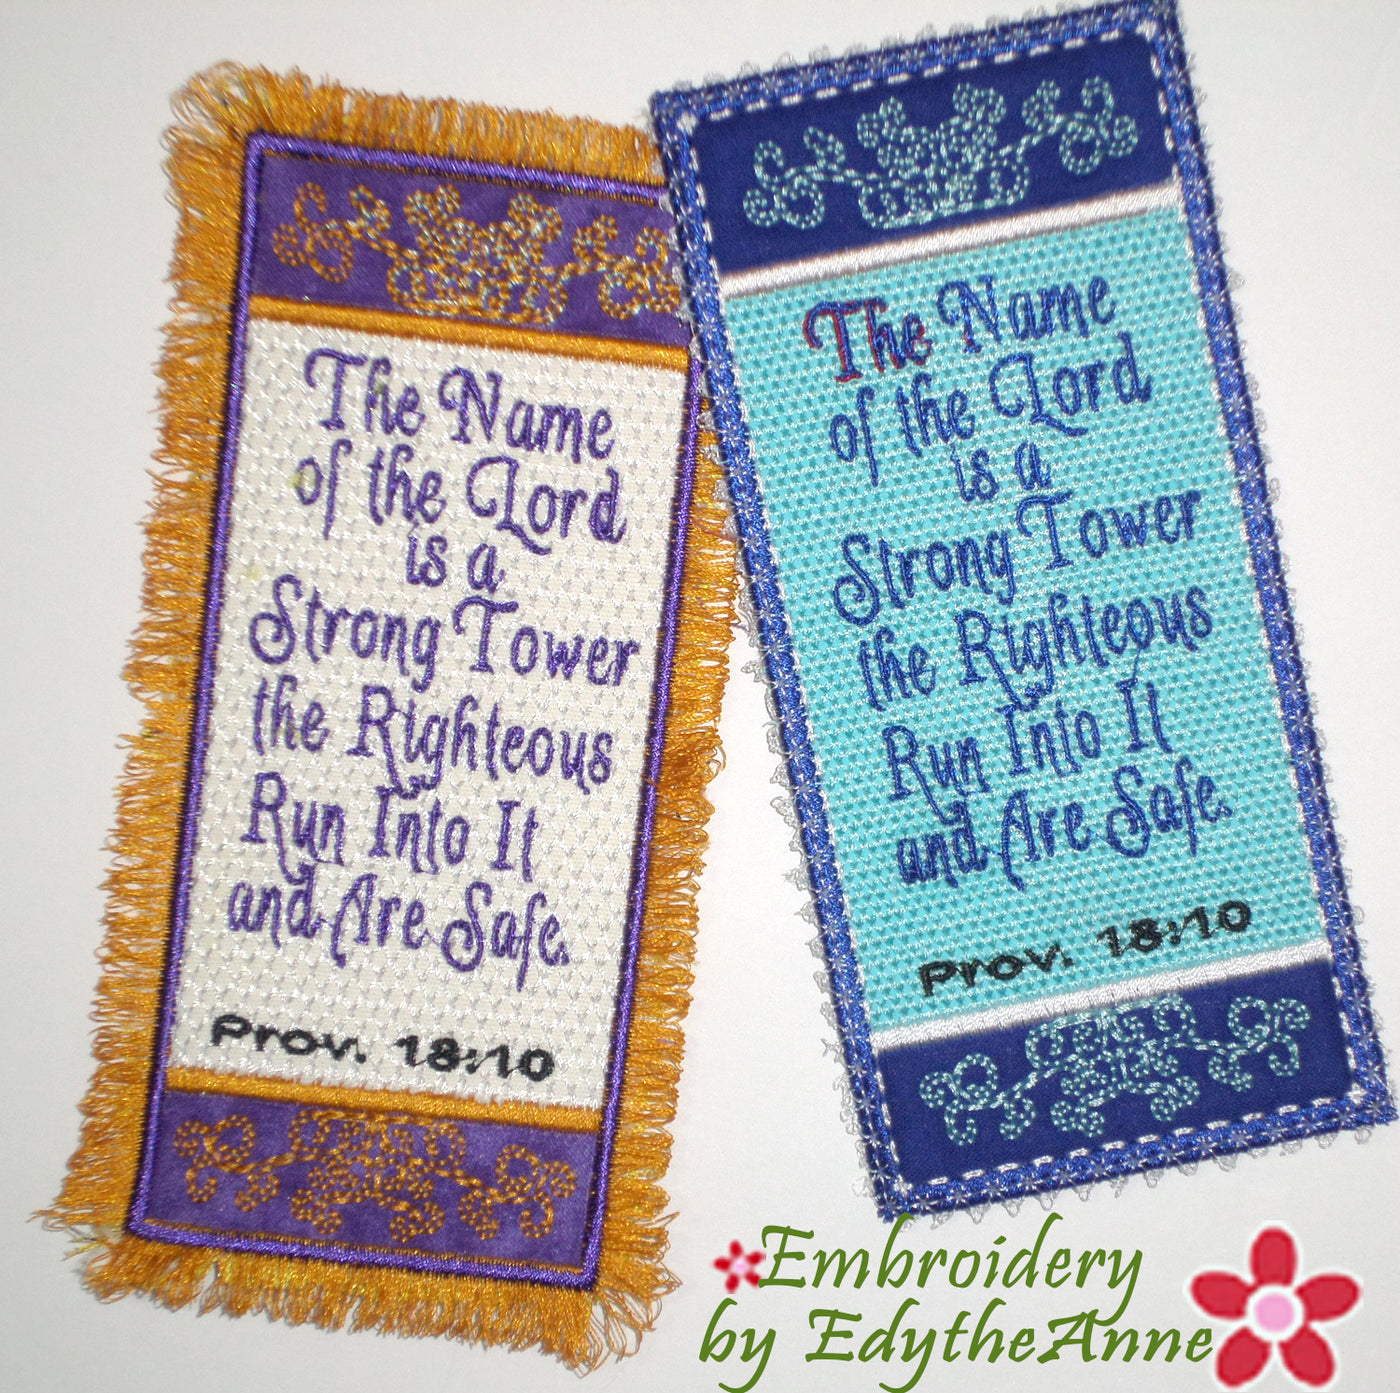 The Name
of the Lord
is a
Strong Tower
the Righteous
Run Into It
and Are Safe.
Prov. 18:10
The Name
of the Lord
is a
Strong Tower
the Righteous
Run Into It
and Are Safe.
Prov. 18:10
Embroidery
by EdytheAnne